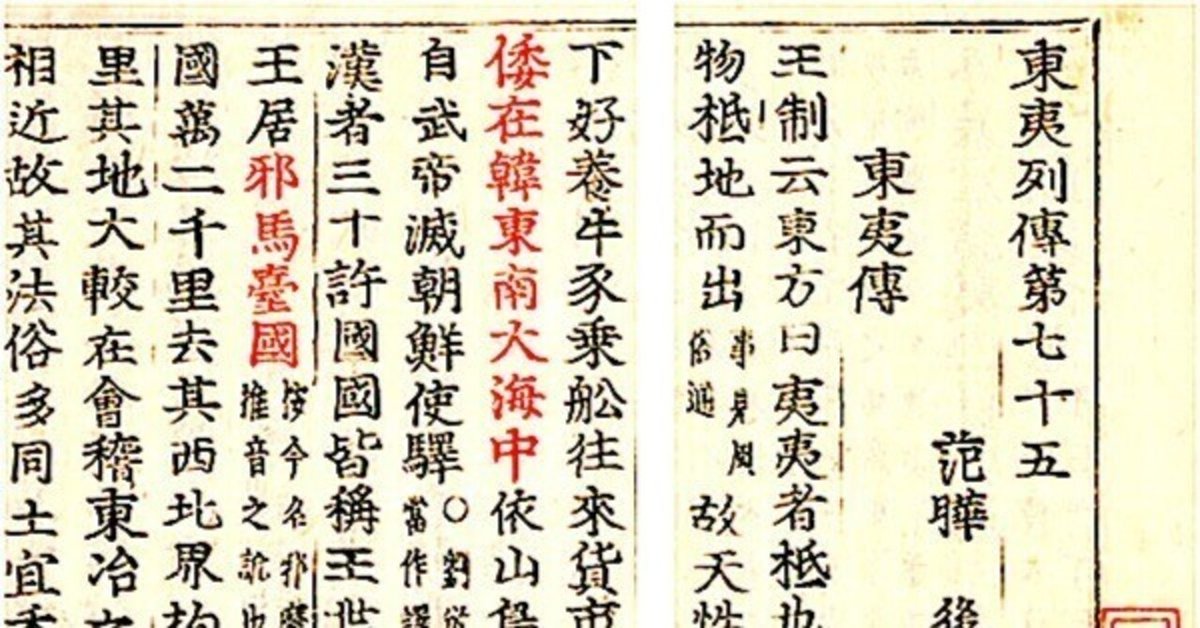 東夷列傳第七十五
范曄 後
東夷傳
王制云東方曰夷夷者柢也
物柢地而出事見風俗通故天性
下好養牛豕乗船往來貨市
倭在韓東南大海中依山島
自武帝滅朝鮮使驛○劉攽當作譯
漢者三十許國國皆稱王世
王居邪馬臺國按今名邪摩推音之訛也
國萬二千里去其西北界拘
里其地大較在會稽東冶之
相近故其法俗多同土宜禾